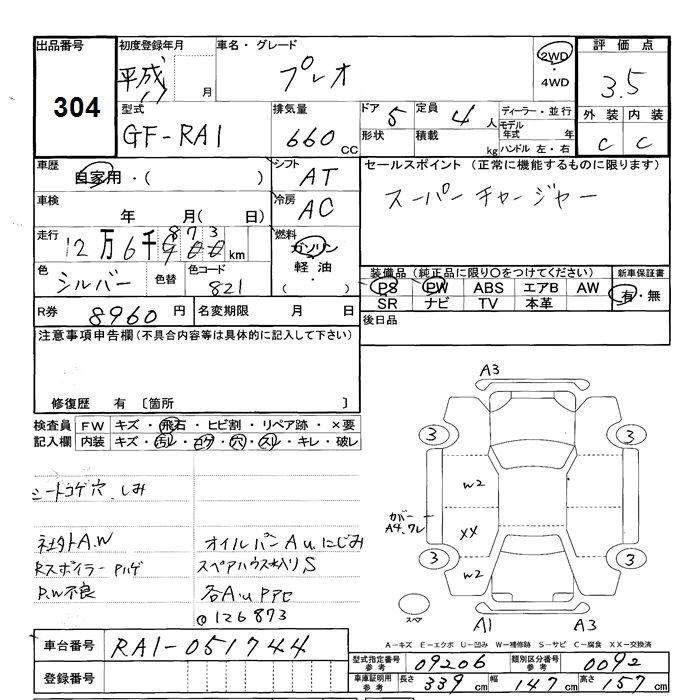 出品番号 初度登録年月 車名・グレード 2WD 評価点
304 平成 月 プレオ ・ 3.5
4WD
型式 排気量 ドア 5 定員 4人 ディーラー・並行 外装 内装
GF-RA1 660 CC 形状 積載 kg モデル年式 年 C C
ハンドル 左・右
車歴 自家用・( ) シフト AT セールスポイント (正常に機能するものに限ります)
車検 年 月( 日) 冷房 AC スーパーチャージャー
走行 12万6千873 km 燃料 ガソリン
軽油
・( )
色 シルバー 色替 色コード 821
装備品 (純正品に限り○をつけてください) 新車保証書
PS PW ABS エアB AW 有・無
SR ナビ TV 本革
R券 8960 円 名変期限 月 日 後日品
注意事項申告欄 (不具合内容等は具体的に記入して下さい)
修復歴 有 〔箇所 〕
検査員 FW キズ・飛石・ヒビ割・リペア跡・×要
記入欄 内装 キズ・汚レ・コゲ・穴・スレ・キレ・破レ
シートコゲ穴、しみ
社外A.W オイルパンAu.にじみ
Rスポイラー Pハゲ スペアハウス水入りS
P.W不良
126873
A3
3 3
W2
カバー
A4.ワレ
XX
3 3
W2
スペア
A1 A3
A-キズ E-エクボ U-凹み W-補修跡 S-サビ C-腐食 XX-交換済
車台番号 RA1-051744
登録番号
型式指定番号 参考 09206 類別区分番号 参考 0092
車庫証明用 参考 長さ 339 cm 幅 147 cm 高さ 157 cm